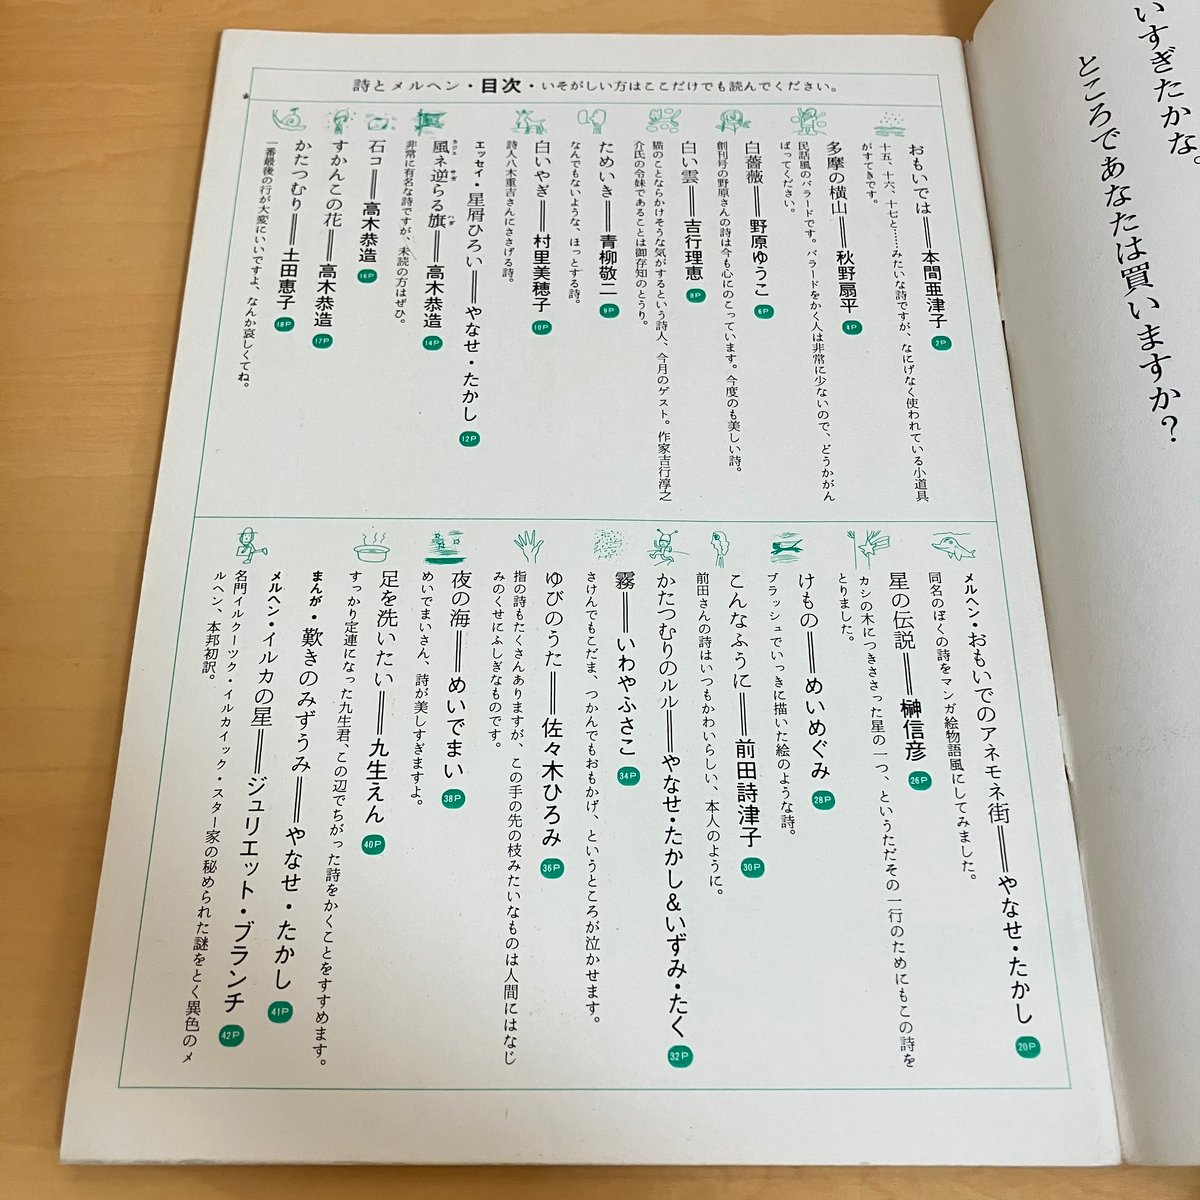 いすぎたかな。
ところであなたは買いますか？
詩とメルヘン・目次・いそがしい方はここだけでも読んでください。
おもいでは＝本間亜津子 2P
十五、十六、十七と……みたいな詩ですが、なにげなく使われている小道具
がすてきです。
多摩の横山＝秋野扇平 4P
民話風のバラードです。バラードをかく人は非常に少ないので、どうかがん
ばってください。
白薔薇＝野原ゆうこ 6P
創刊号の野原さんの詩は今も心にのこっています。今度のも美しい詩。
白い雲＝吉行理恵 8P
猫のことならかけそうな気がするという詩人、今月のゲスト。作家吉行淳之
介氏の令妹であることは御存知のとうり。
ためいき＝青柳敬二 9P
なんでもないような、ほっとする詩。
白いやぎ＝村里美穂子 10P
詩人八木重吉さんにささげる詩。
エッセイ・星屑ひろい＝やなせ・たかし 12P
風ネ逆らる旗＝高木恭造 14P
カジェ サガ ハダ
非常に有名な詩ですが、未読の方はぜひ。
石コ＝高木恭造 16P
すかんこの花＝高木恭造 17P
かたつむり＝土田恵子 18P
一番最後の行が大変にいいですよ、なんか哀しくてね。
メルヘン・おもいでのアネモネ街＝やなせ・たかし 20P
同名のぼくの詩をマンガ絵物語風にしてみました。
星の伝説＝榊信彦 26P
カシの木につきささった星の一つ、というただその一行のためにもこの詩を
とりました。
けもの＝めいめぐみ 28P
ブラッシュでいっきに描いた絵のような詩。
こんなふうに＝前田詩津子 30P
前田さんの詩はいつもかわいらしい、本人のように。
かたつむりのルル＝やなせ・たかし&いずみ・たく 32P
霧＝いわやふさこ 34P
さけんでもこだま、つかんでもおもかげ、というところが泣かせます。
ゆびのうた＝佐々木ひろみ 36P
指の詩もたくさんありますが、この手の先の枝みたいなものは人間にはなじ
みのくせにふしぎなものです。
夜の海＝めいでまい 38P
めいでまいさん、詩が美しすぎますよ。
足を洗いたい＝九生えん 40P
すっかり定連になった九生君、この辺でちがった詩をかくことをすすめます。
まんが・歎きのみずうみ＝やなせ・たかし 41P
メルヘン・イルカの星＝ジュリエット・ブランチ 42P
名門イルクーツク・イルカイック・スター家の秘められた謎をとく異色のメ
ルヘン、本邦初訳。